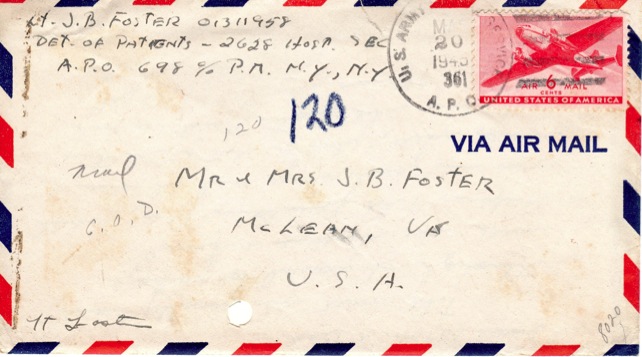 Lt. J.B. FOSTER 01311958
DET. OF PATIENTS - 2628 HOSP. SEC
A.P.O. 698 c/o P.M. N.Y., N.Y.
U.S. ARMY
20
1943
361
A.P.O.
AIR 6 MAIL
CENTS
UNITED STATES OF AMERICA
120
120
VIA AIR MAIL
MR & MRS. J.B. FOSTER
MCLEAN, VA
U.S.A.
8020